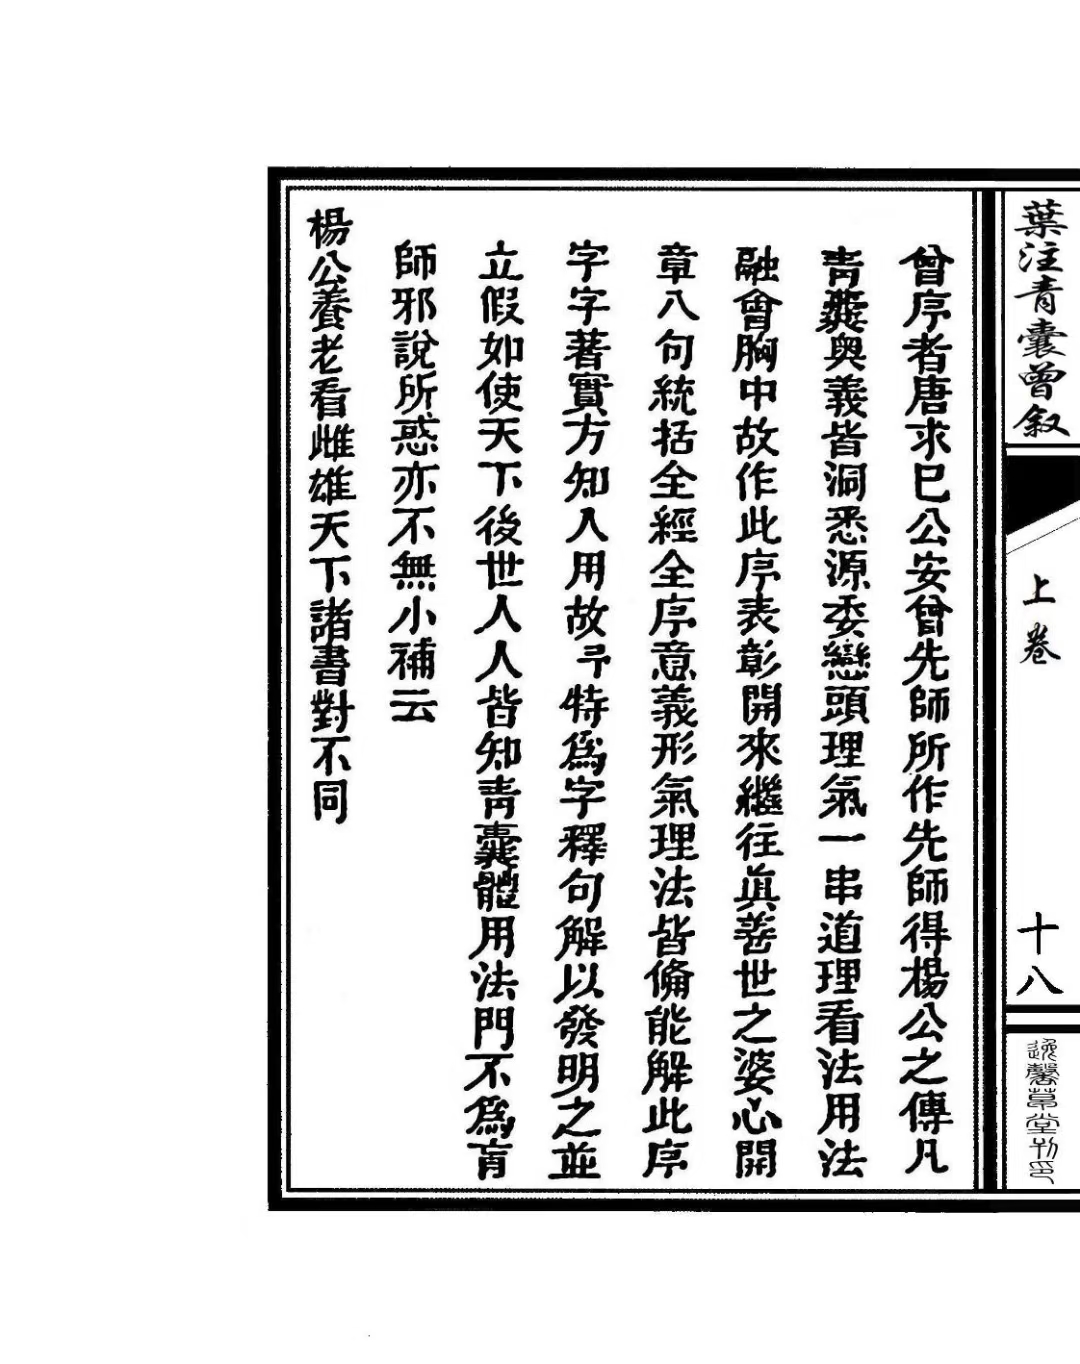 葉注青囊曾叙
上卷
十八
逸馨草堂刊印
曾序者唐求巳公安曾先師所作先師得楊公之傳凡
青囊奥義皆洞悉源委巒頭理氣一串道理看法用法
融會胸中故作此序表彰開來繼往眞善世之婆心開
章八句統括全經全序意義形氣理法皆備能解此序
字字著實方知入用故予特爲字釋句解以發明之並
立假如使天下後世人人皆知青囊體用法門不爲肓
師邪說所惑亦不無小補云
楊公養老看雌雄天下諸書對不同